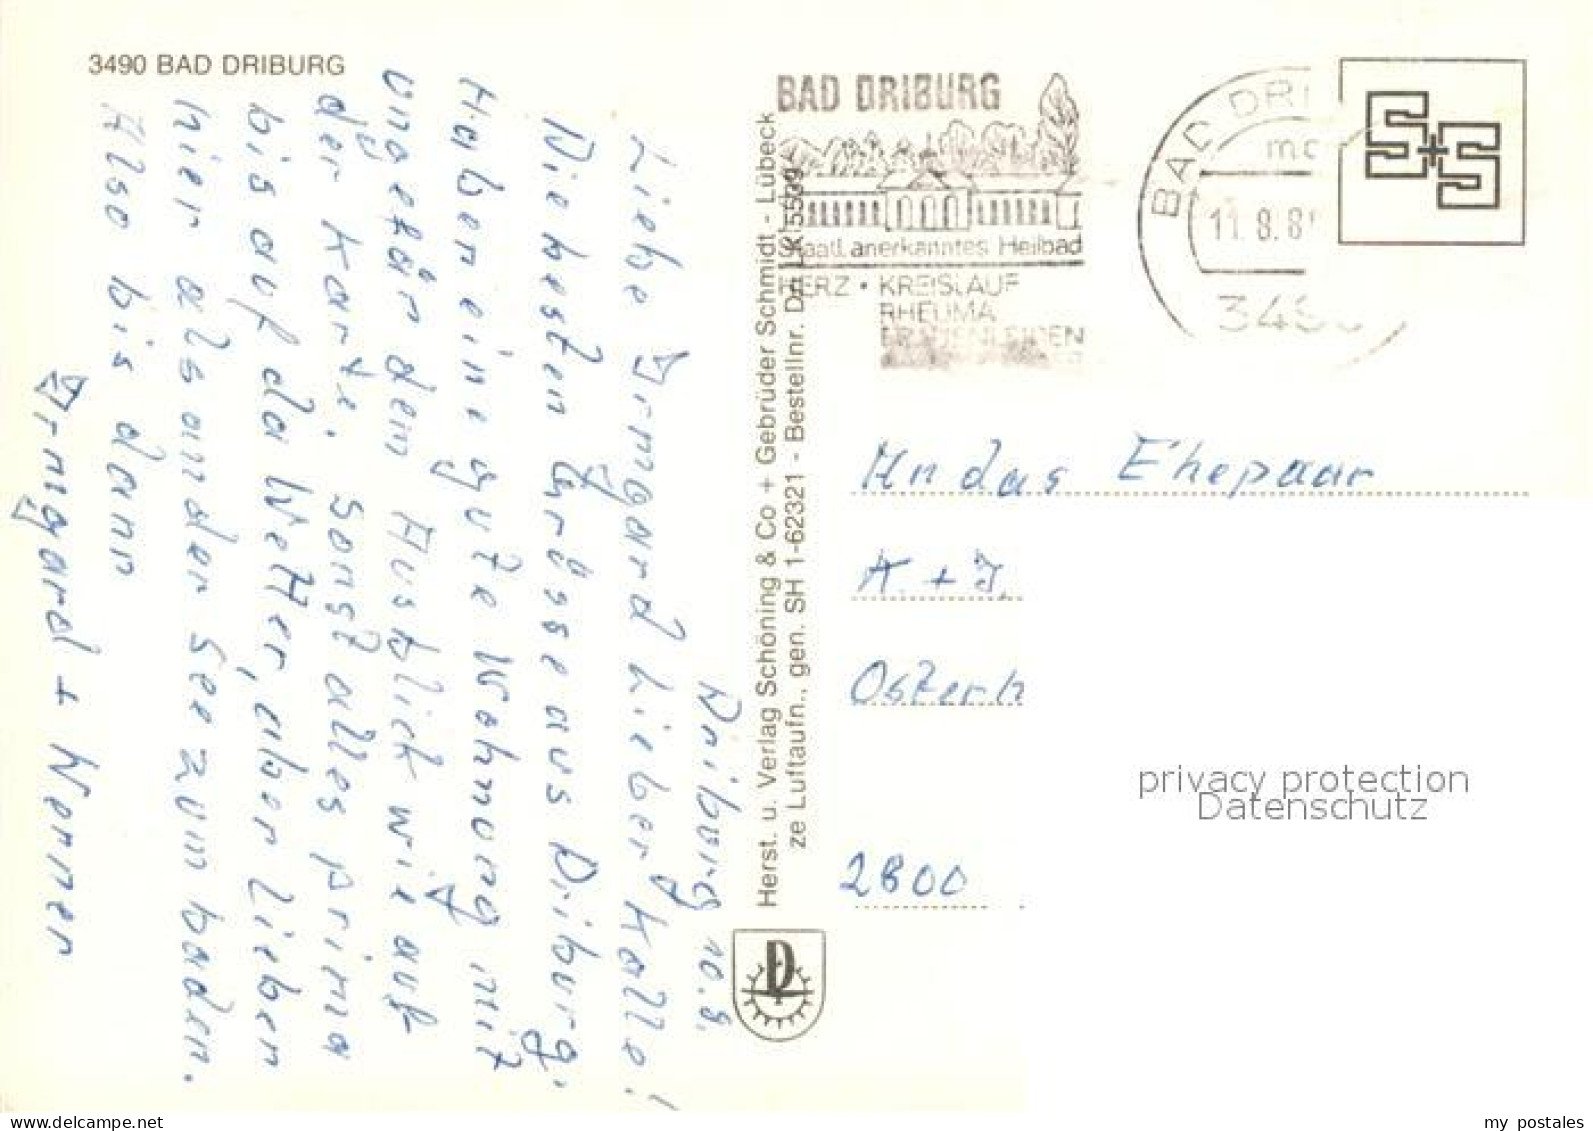 3490 BAD DRIBURG
Driburg 10.8.
Liebe Irmgard lieber Kalle!
Die besten Grüsse aus Driburg.
Haben eine gute Wohnung mit
ungefär dem Ausblick wie auf
der Karte. Sonst alles prima
bis auf da Wetter, aber lieben
hier als an der See zum baden.
Also bis dann
Irmgard + Werner
Herst. u. Verlag Schöning & Co + Gebrüder Schmidt - Lübeck
ze Luftaufn., gen. SH 1-62321 - Bestellnr. Dri LK 5539
BAD DRIBURG
Staatl. anerkanntes Heilbad
HERZ · KREISLAUF
RHEUMA
FRAUENLEIDEN
BAD DRI
11.8.8
S+S
An das Ehepaar
A. + I.
Osterh
2800
privacy protection
Datenschutz
my postales